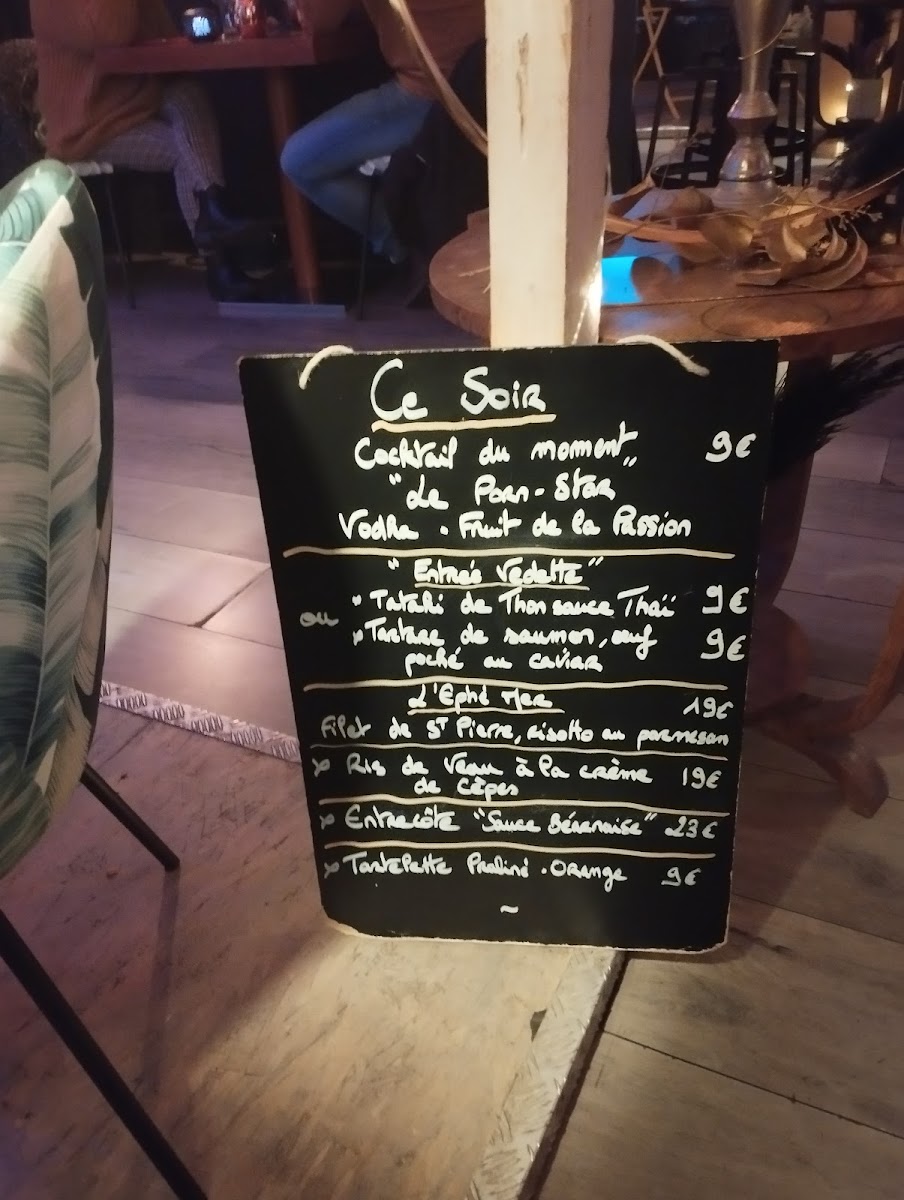 Ce Soir
Cocktail du moment 9€
"Le Porn-Star"
Vodka . Fruit de la Passion
"Entrée Vedette"
" Tataki de Thon sauce Thaï 9€
ou
" Tartare de saumon, œuf 9€
poché au caviar
L'Ephé Mer 19€
Filet de St Pierre, risotto au parmesan
x Ris de Veau à la crème 19€
de Cèpes
x Entrecôte "Sauce Béarnaise" 23€
x Tartelette Praliné . Orange 9€
~